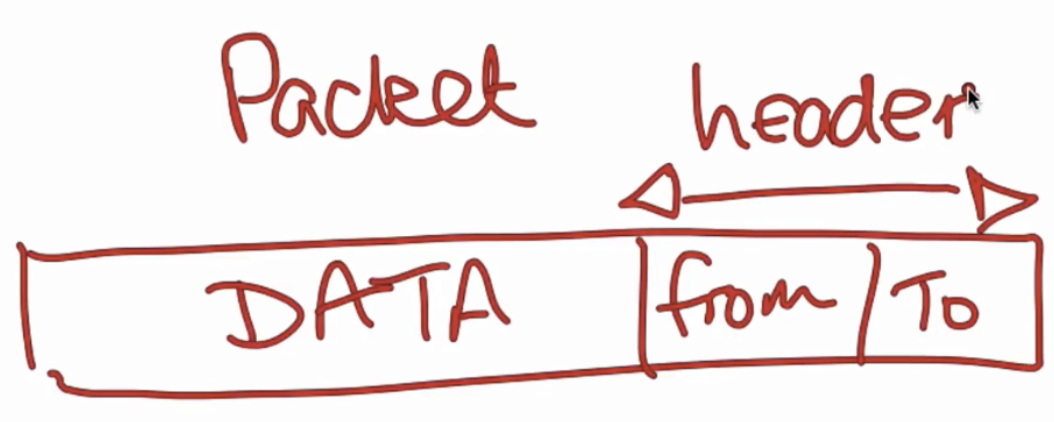 Packet header
DATA from To